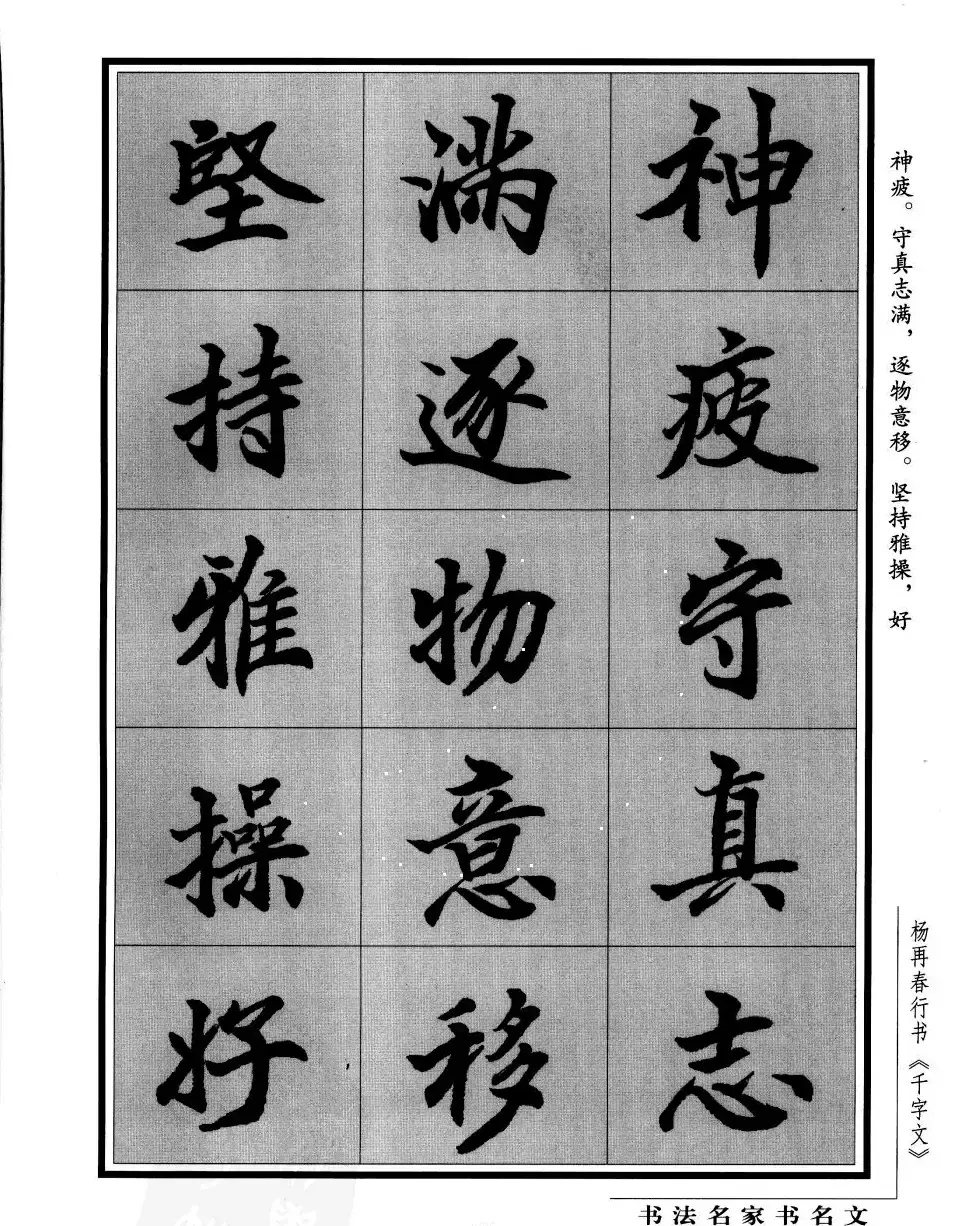 神疲守真志
滿逐物意移
堅持雅操好
神疲。守真志满，逐物意移。坚持雅操，好
杨再春行书《千字文》
书法名家书名文